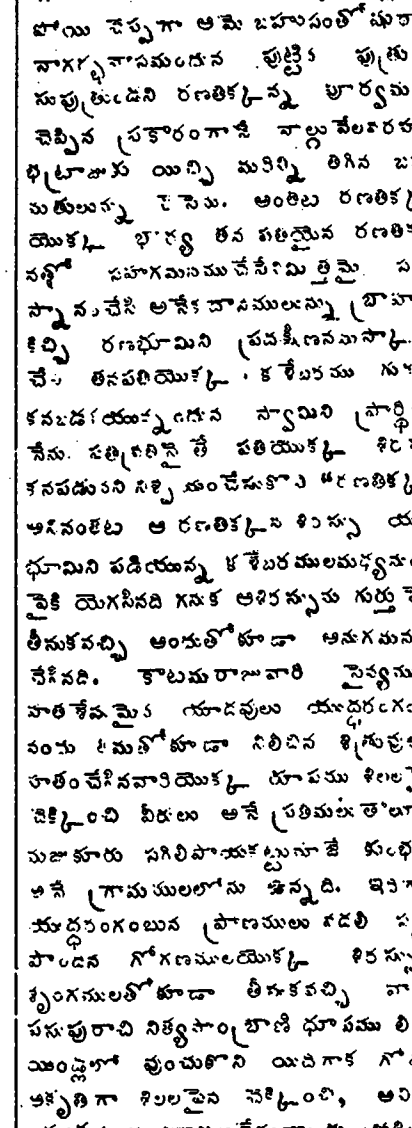 పోయి చెప్పగా ఆమె బహుసంతోషురా
నాగర్భవాసమందున పుట్టిన పుత్రు
సుపుత్రుఁడని రణతిక్కన్న పూర్వము
చెప్పిన ప్రకారంగానే నాల్గు వేలవరహ
భట్రాజుకు యిచ్చి మరిన్ని తగిన బ
మతులున్ను చేసెను. అంతట రణతిక్క
యొక్క భార్య తన పతియైన రణతిక్క
నతో సహగమనము చేసేనిమిత్తమై
స్నానంచేసి అనేక దానములున్ను బ్రాహ
కిచ్చి రణభూమిని ప్రదక్షిణనమస్కా
చేసి తనపతియొక్క కళేబరము గురు
కనబడకయున్నందున స్వామిని ప్రార్థి
నేను పతివ్రతనైతే పతియొక్క శిర
కనపడునని నిశ్చయంచేసుకొని "రణతిక్క
అనినంతట ఆ రణతిక్కన శిరస్సు యు
భూమిని పడియున్న కళేబరములమధ్యను
పైకి యెగసినది గనుక ఆశిరస్సును గుర్తు
తీసుకవచ్చి అందుతోకూడా అనుగమన
చేసినది. కాటమరాజువారి సైన్యము
హతశేషమైన యాదవులు యుద్ధరంగ
నందు తమతోకూడా నిలిచిన శత్రువు
హతంచేసినవారియొక్క రూపము శిలల
చెక్కించి వీరులు అనే ప్రతిమలు
అనే గ్రామములలోను ఉన్నది.
యుద్ధరంగంబున ప్రాణములు వదలి
పొందిన గోగణములయొక్క శిరస్సు
శృంగములతోకూడా తీసుకవచ్చి వా
పసుపురాచి నిత్యసాంబ్రాణి ధూపము
యిండ్లలో వుంచుకొని యిదిగాక గో
ఆకృతిగా శిలలపైన చెక్కించి, అవి